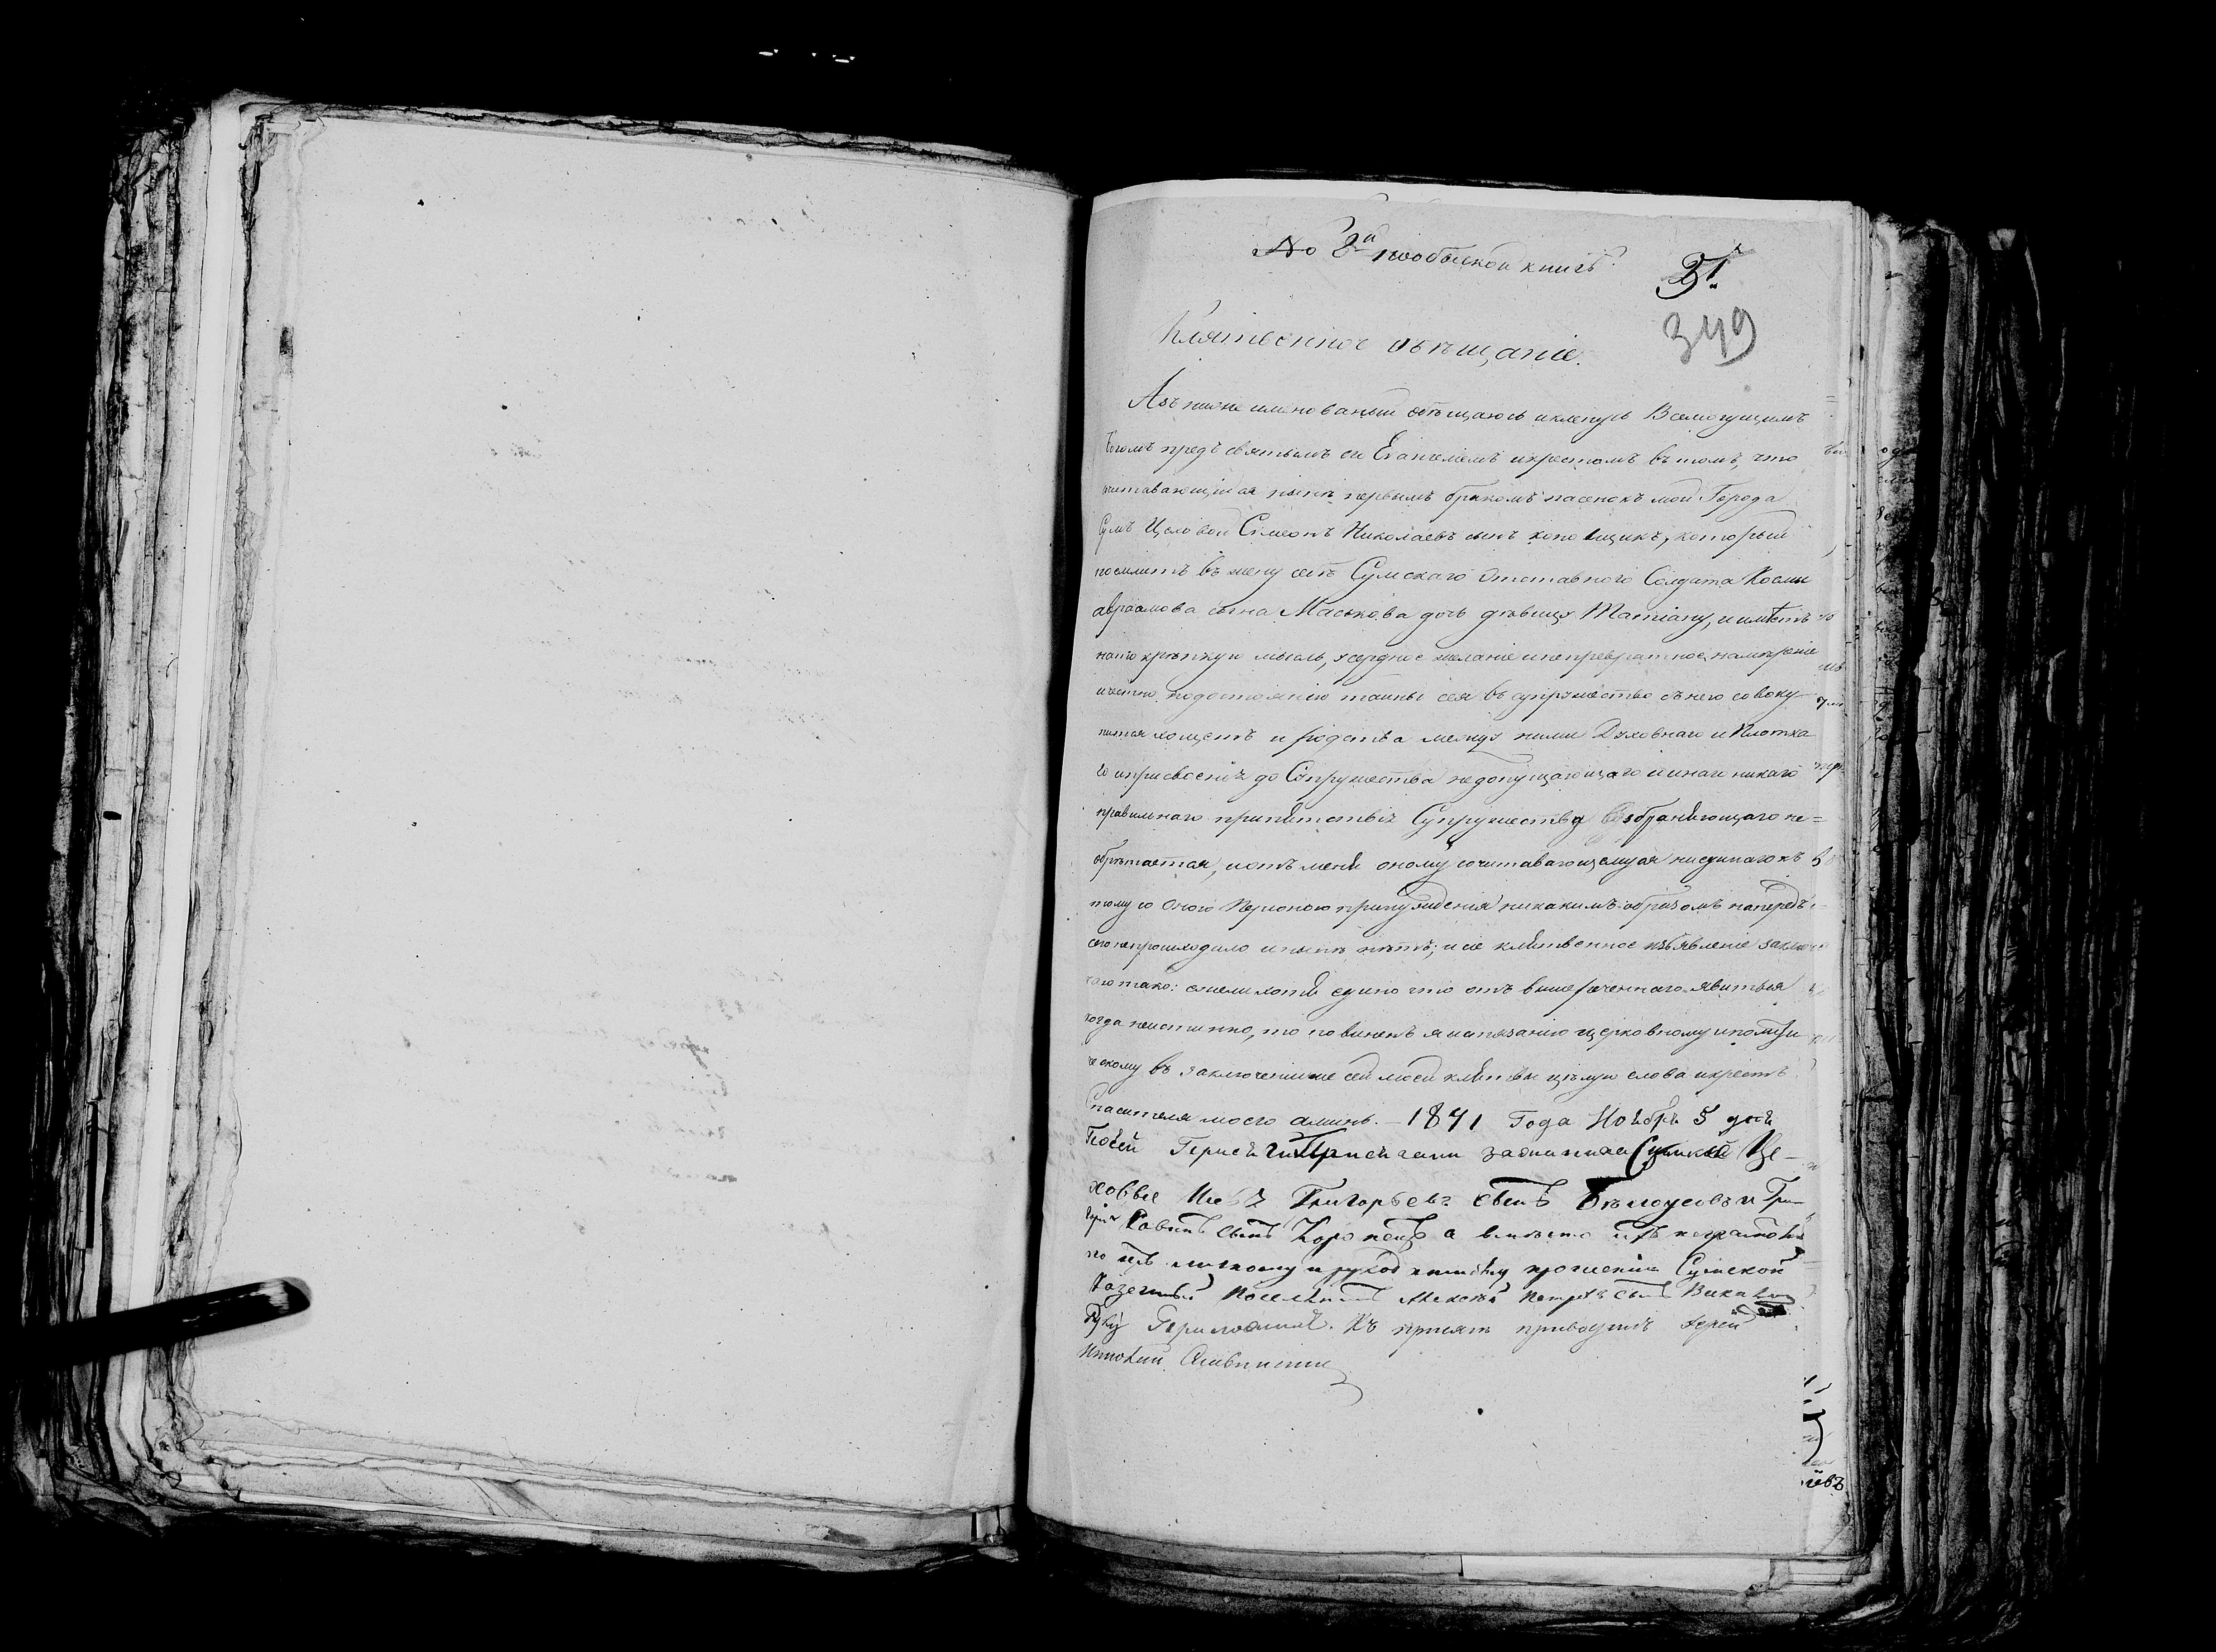 № 8й пообыскной книгѣ
31.
349
Клятвенное обѣщаніе.
Азъ ниже имянованый обѣщаюсь и кленусь Всемогущимъ
Богомъ предъ святымъ его Евангелiемъ и крестомъ въ томъ, что
сочитавающiйся нынѣ первымъ бракомъ пасенокъ мой Города
Сумъ Цеховой Симеонъ Николаевъ сынъ который
поемлетъ въ жену себѣ Сумскаго Отставного Солдата Космы
авраамова сына Маськова дочь дѣвицу Татiану, и имѣетъ
на то крѣпкую мысль, усердное желанiе и непревратное намѣренiе
и честно подостоянiю тайны сея въ супружество сънею совоку-
питися хощетъ и родства между ними Духовнаго и Плотска
го и присвоенiя до Супружества недопущающаго и инаго никаго
правильнаго припятствiя Супружеству Возбраняющаго не=
обрѣтается, и отъ меня оному сочитавающемуся ни единаго къ
тому со Оною Персоною принужденiя никакимъ образомъ напередъ
сего непроисходило и нынѣ нѣтъ; и сiе клятвенное изъявленiе заклю
чаю тако: ежели хотя едино что отъ вышереченнаго явиться
когда неистинно, то повиненъ я истязанiю церковному и полити
ческому въ заключенiиже сей моей клятвы цѣлую слова и крестъ
Спасителя моего аминь. - 1841 Года Ноября 5 дня
Ксей Присягали Сумскiе Це-
ховые Григорьевъ сынъ Бѣлоусовъ и Гри-
горiй Савинъ сынъ а вмѣсто ихъ неграмотны
по ихъ личному и прошенiю Сумской
Казенный Поселянинъ Алексѣй Петровъ сынъ
Руку Приложилъ. Къ присягѣ приводилъ Iерей